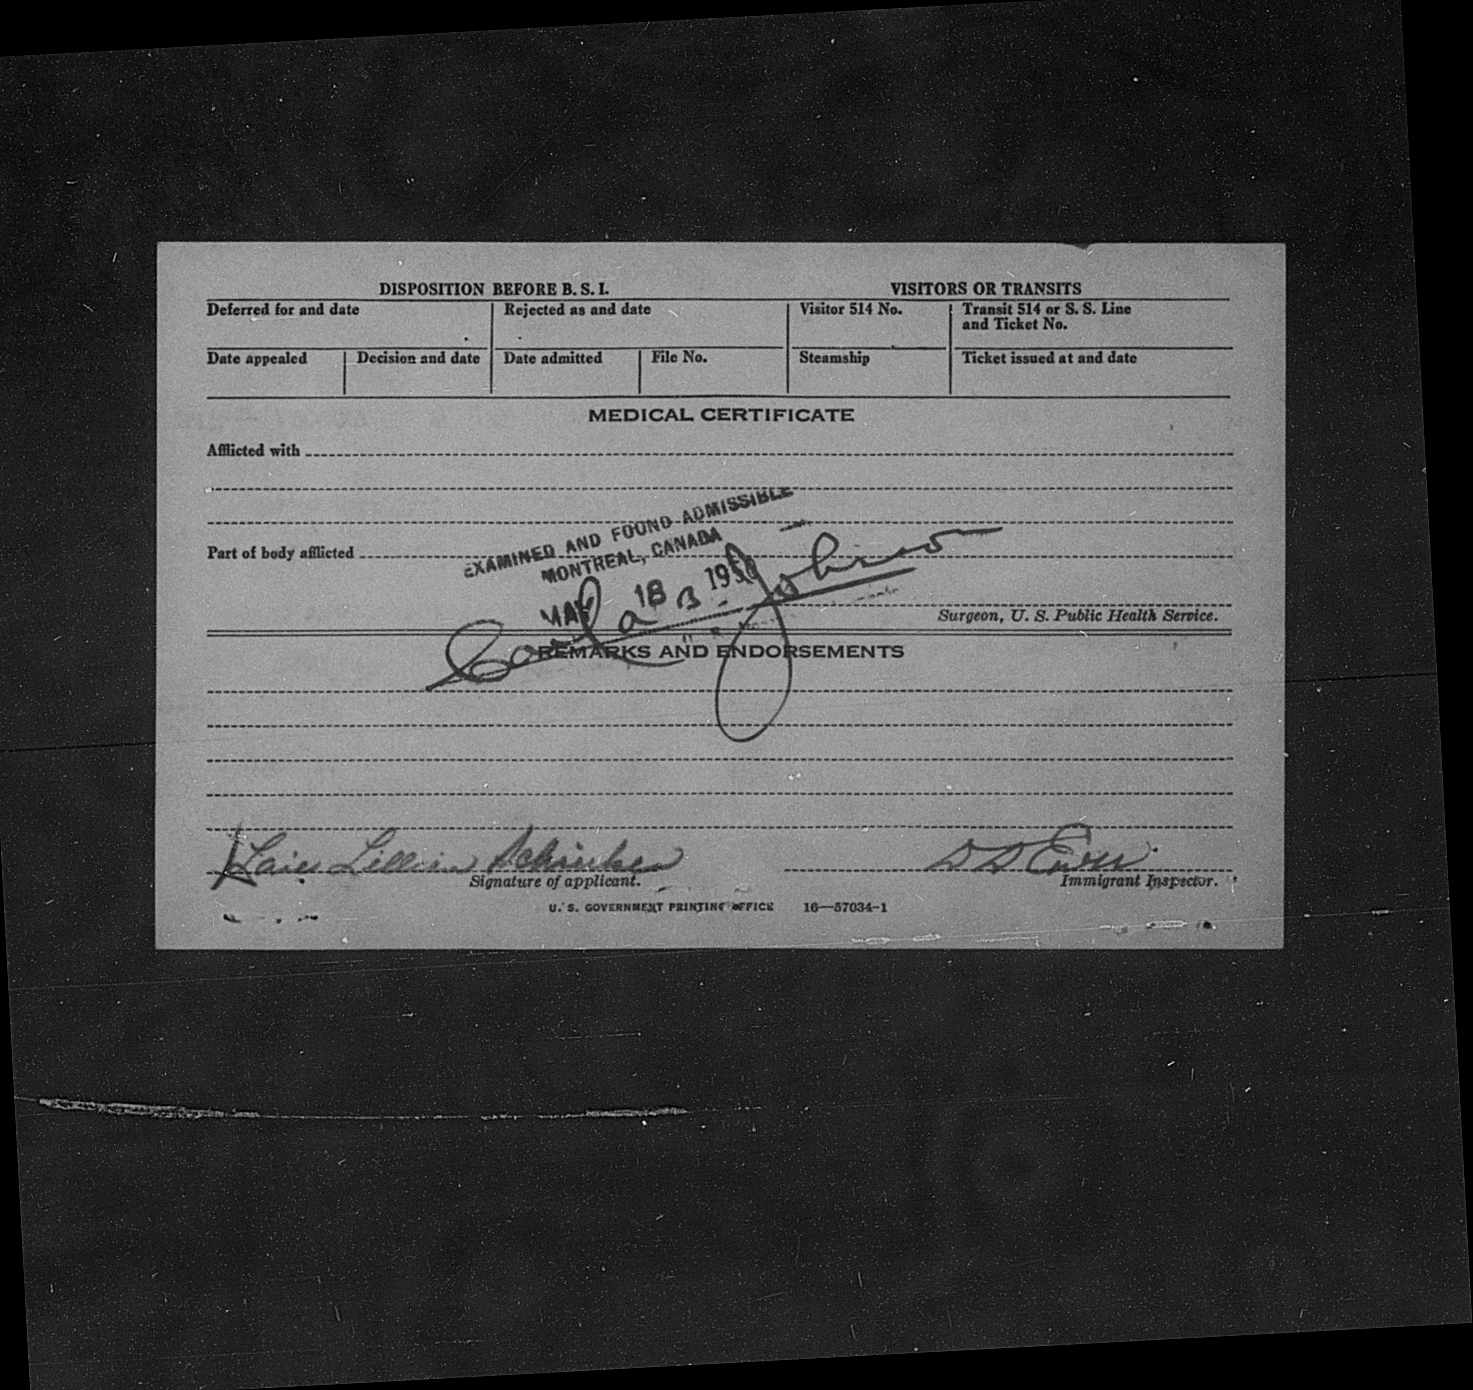 DISPOSITION BEFORE B. S. I.
VISITORS OR TRANSITS
Deferred for and date
Rejected as and date
Visitor 514 No.
Transit 514 or S. S. Line
and Ticket No.
Date appealed
Decision and date
Date admitted
File No.
Steamship
Ticket issued at and date
MEDICAL CERTIFICATE
Afflicted with
EXAMINED AND FOUND ADMISSIBLE
Part of body afflicted
MONTREAL, CANADA
MAY 18 195
Johnson
Surgeon, U. S. Public Health Service.
REMARKS AND ENDORSEMENTS
Lillian
Signature of applicant.
Immigrant Inspector.
U. S. GOVERNMENT PRINTING OFFICE 16—57034-1